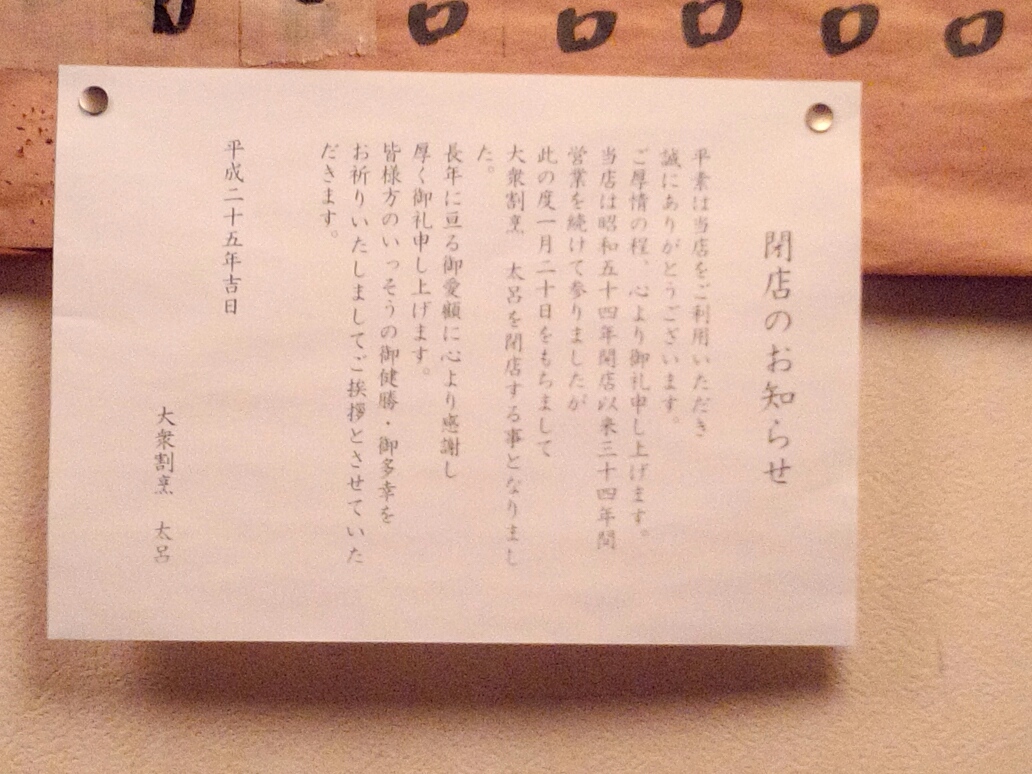 閉店のお知らせ
平素は当店をご利用いただき
誠にありがとうございます。
ご厚情の程、心より御礼申し上げます。
当店は昭和五十四年開店以来三十四年間
営業を続けて参りましたが
此の度一月二十日をもちまして
大衆割烹　太呂を閉店する事となりまし
た。
長年に亘る御愛顧に心より感謝し
厚く御礼申し上げます。
皆様方のいっそうの御健勝・御多幸を
お祈りいたしましてご挨拶とさせていた
だきます。
平成二十五年吉日
大衆割烹　太呂